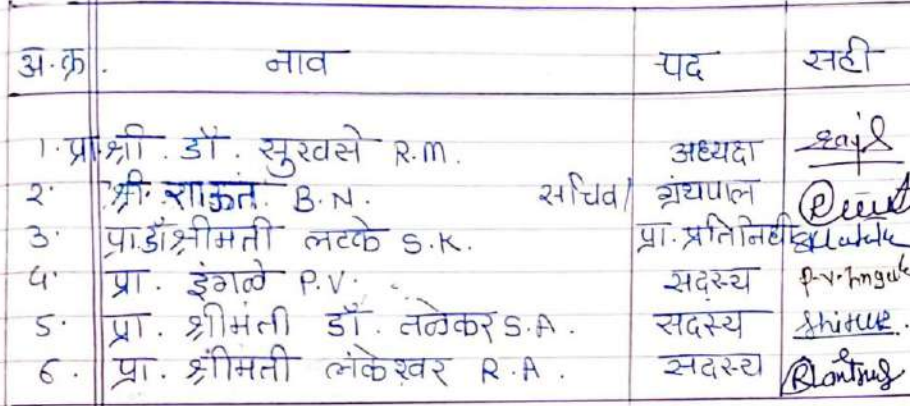 अ.क्र. नाव पद सही
1. प्रा.श्री. डॉ. सुरवसे R.M. अध्यक्ष
२. श्री. राऊत B.N. सचिव/ ग्रंथपाल
3. प्रा.डॉ.श्रीमती लटके S.K. प्रा. प्रतिनिधी
4. प्रा. इंगळे P.V. सदस्य P.V. Ingale
5. प्रा. श्रीमंती डॉ. तळेकर S.A. सदस्य
6. प्रा. श्रीमती लंकेश्वर R.A. सदस्य